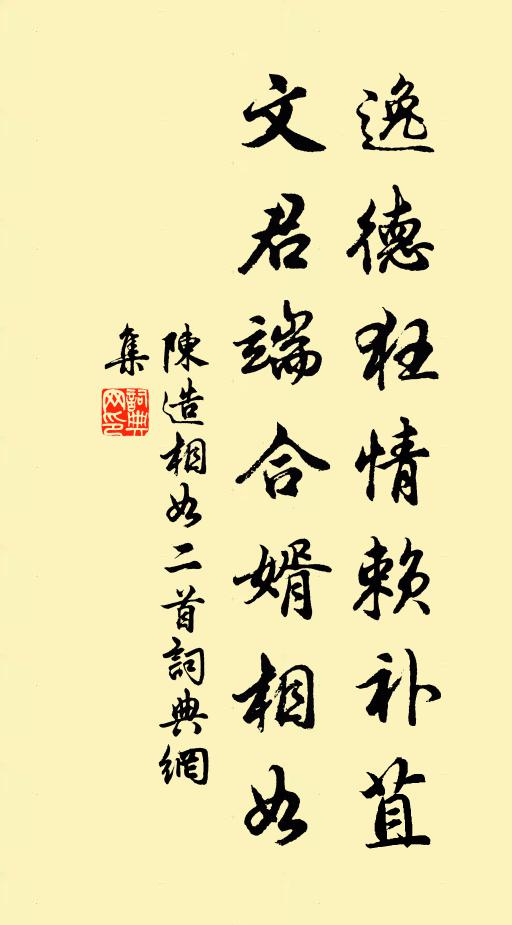 逸德狂情赖补苴
文君端合婿相如
陳造相如二首詞典網
集
詞典
网印